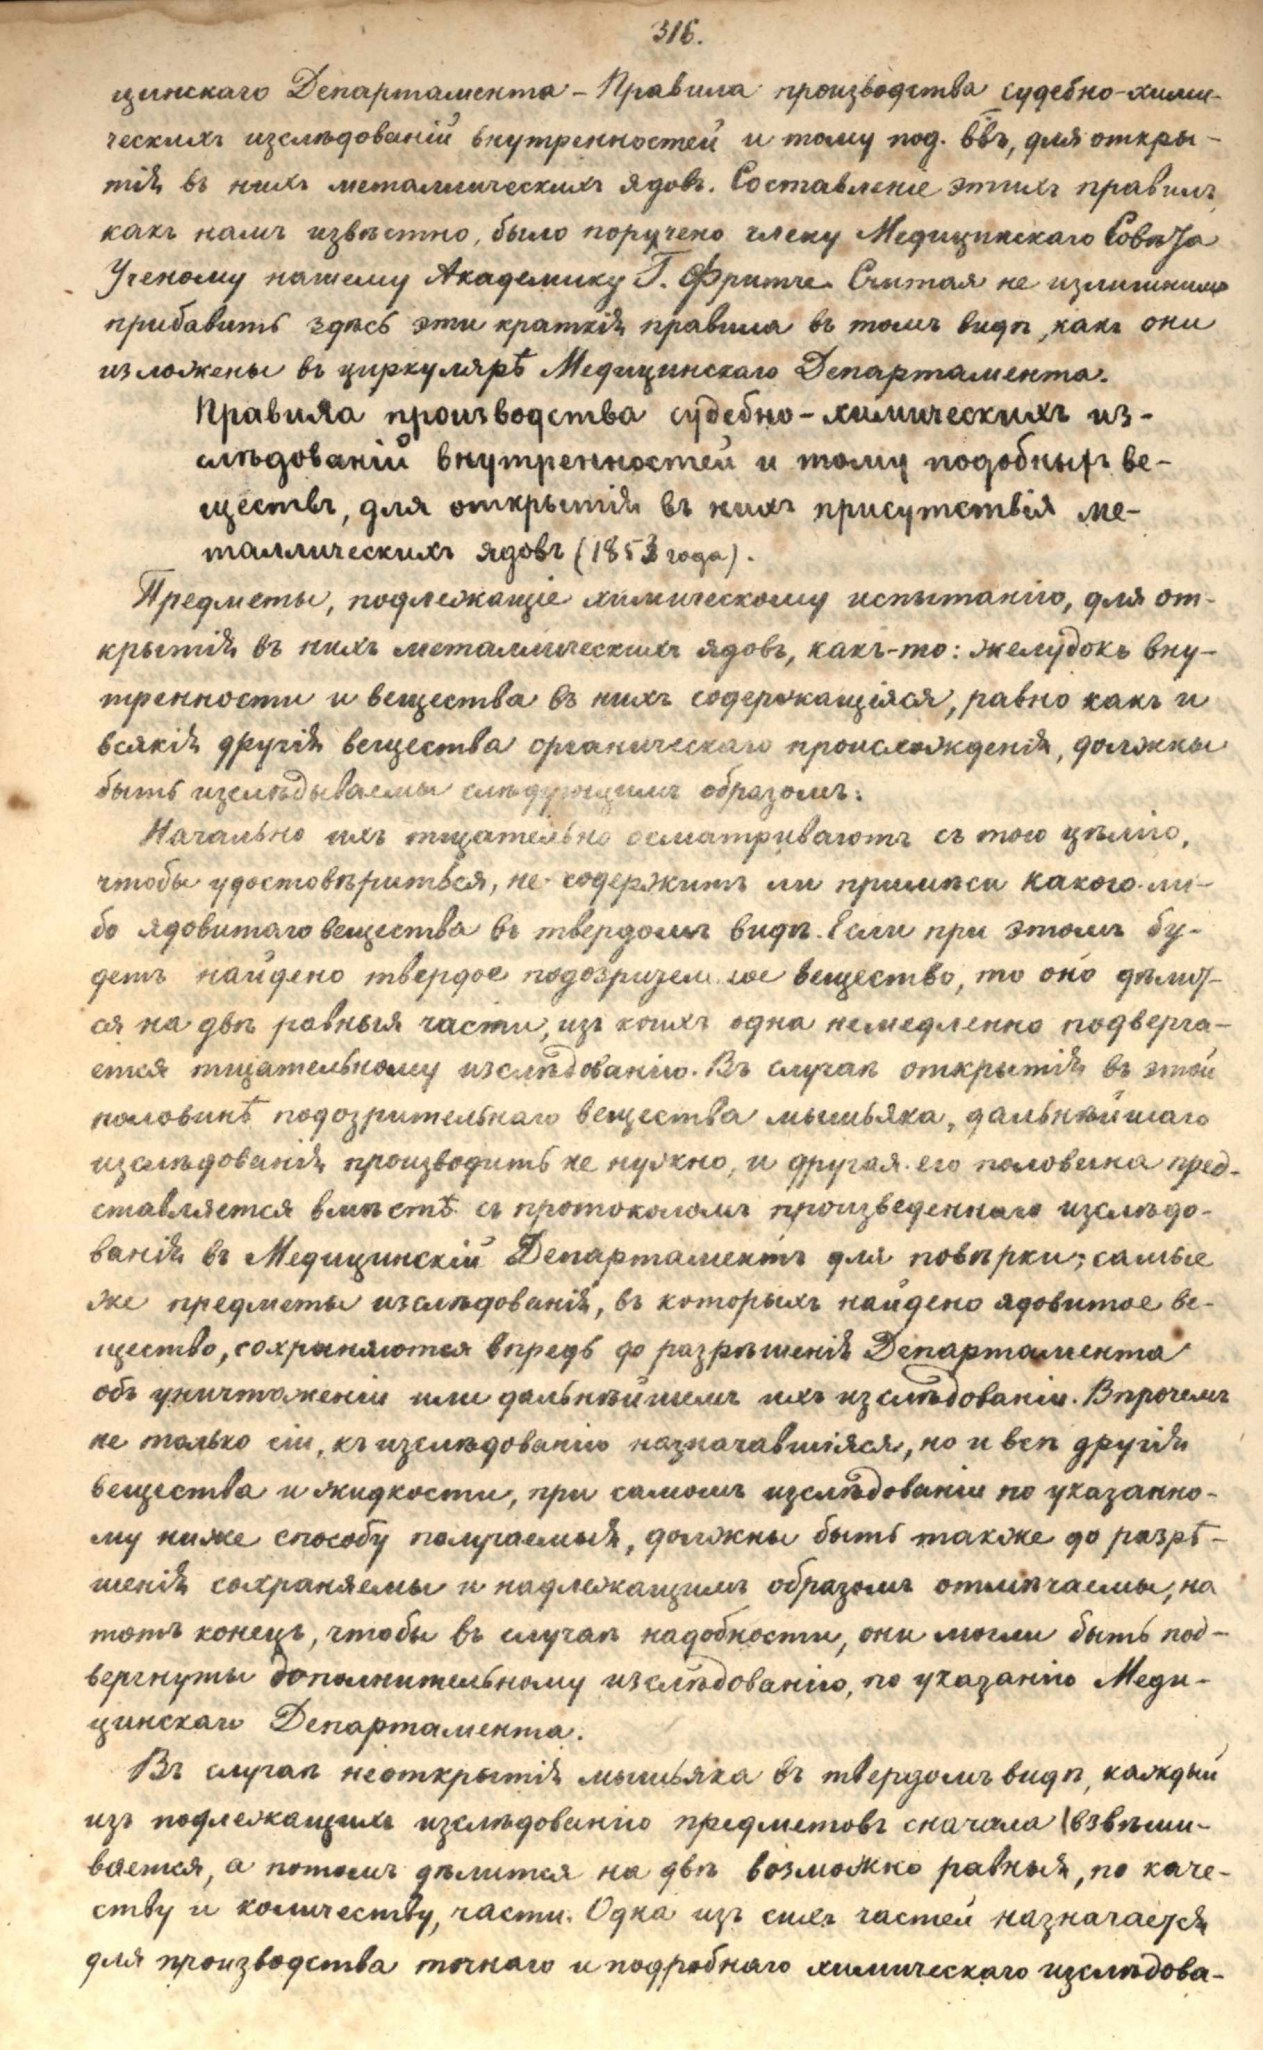 316.
цинскаго Департамента – Правила производства судебно-хими-
ческихъ изслѣдованій внутренностей и тому под. ввъ, для откры-
тія въ нихъ металлическихъ ядовъ. Составленіе этихъ правилъ,
какъ намъ извѣстно, было поручено члену Медицинскаго Совѣта
Ученому нашему Академику Г. Фритче. Считая не излишнимъ
прибавить здѣсь эти краткія правила въ томъ видѣ, какъ они
изложены въ циркулярѣ Медицинскаго Департамента.
Правила производства судебно-химическихъ из-
слѣдованій внутренностей и тому подобныхъ ве-
ществъ, для открытія въ нихъ присутствія ме-
таллическихъ ядовъ (1853 года).
Предметы, подлежащіе химическому испытанію, для от-
крытія въ нихъ металлическихъ ядовъ, какъ-то: желудокъ вну-
тренности и вещества въ нихъ содержащіяся, равно какъ и
всякія другія вещества органическаго происхожденія, должны
быть изслѣдываемы слѣдующимъ образомъ:
Начально ихъ тщательно осматриваютъ съ тою цѣлію,
чтобы удостовѣриться, не содержитъ ли примѣси какого-ли-
бо ядовитаго вещества въ твердомъ видѣ. Если при этомъ бу-
детъ найдено твердое подозрительное вещество, то оно дѣлит-
ся на двѣ равныя части, изъ коихъ одна немедленно подверга-
ется тщательному изслѣдованію. Въ случаѣ открытія въ этой
половинѣ подозрительнаго вещества мышьяка, дальнѣйшаго
изслѣдованія производить не нужно, и другая его половина пред-
ставляется вмѣстѣ съ протоколомъ произведеннаго изслѣдо-
ванія въ Медицинскій Департаментъ для повѣрки; самые
же предметы изслѣдованія, въ которыхъ найдено ядовитое ве-
щество, сохраняются впредь до разрѣшенія Департамента
объ уничтоженіи или дальнѣйшемъ ихъ изслѣдованіи. Впрочемъ
не только сіи, къ изслѣдованію назначавшіяся, но и всѣ другія
вещества и жидкости, при самомъ изслѣдованіи по указанно-
му ниже способу получаемыя, должны быть также до разрѣ-
шенія сохраняемы и надлежащимъ образомъ отмѣчаемы, на
тотъ конецъ, чтобы въ случаѣ надобности, они могли быть под-
вергнуты дополнительному изслѣдованію, по указанію Меди-
цинскаго Департамента.
Въ случаѣ неоткрытія мышьяка въ твердомъ видѣ, каждый
изъ подлежащихъ изслѣдованію предметовъ сначала взвѣши-
вается, а потомъ дѣлится на двѣ возможно равныя, по каче-
ству и количеству, части. Одна изъ сихъ частей назначается
для производства точнаго и подробнаго химическаго изслѣдова-